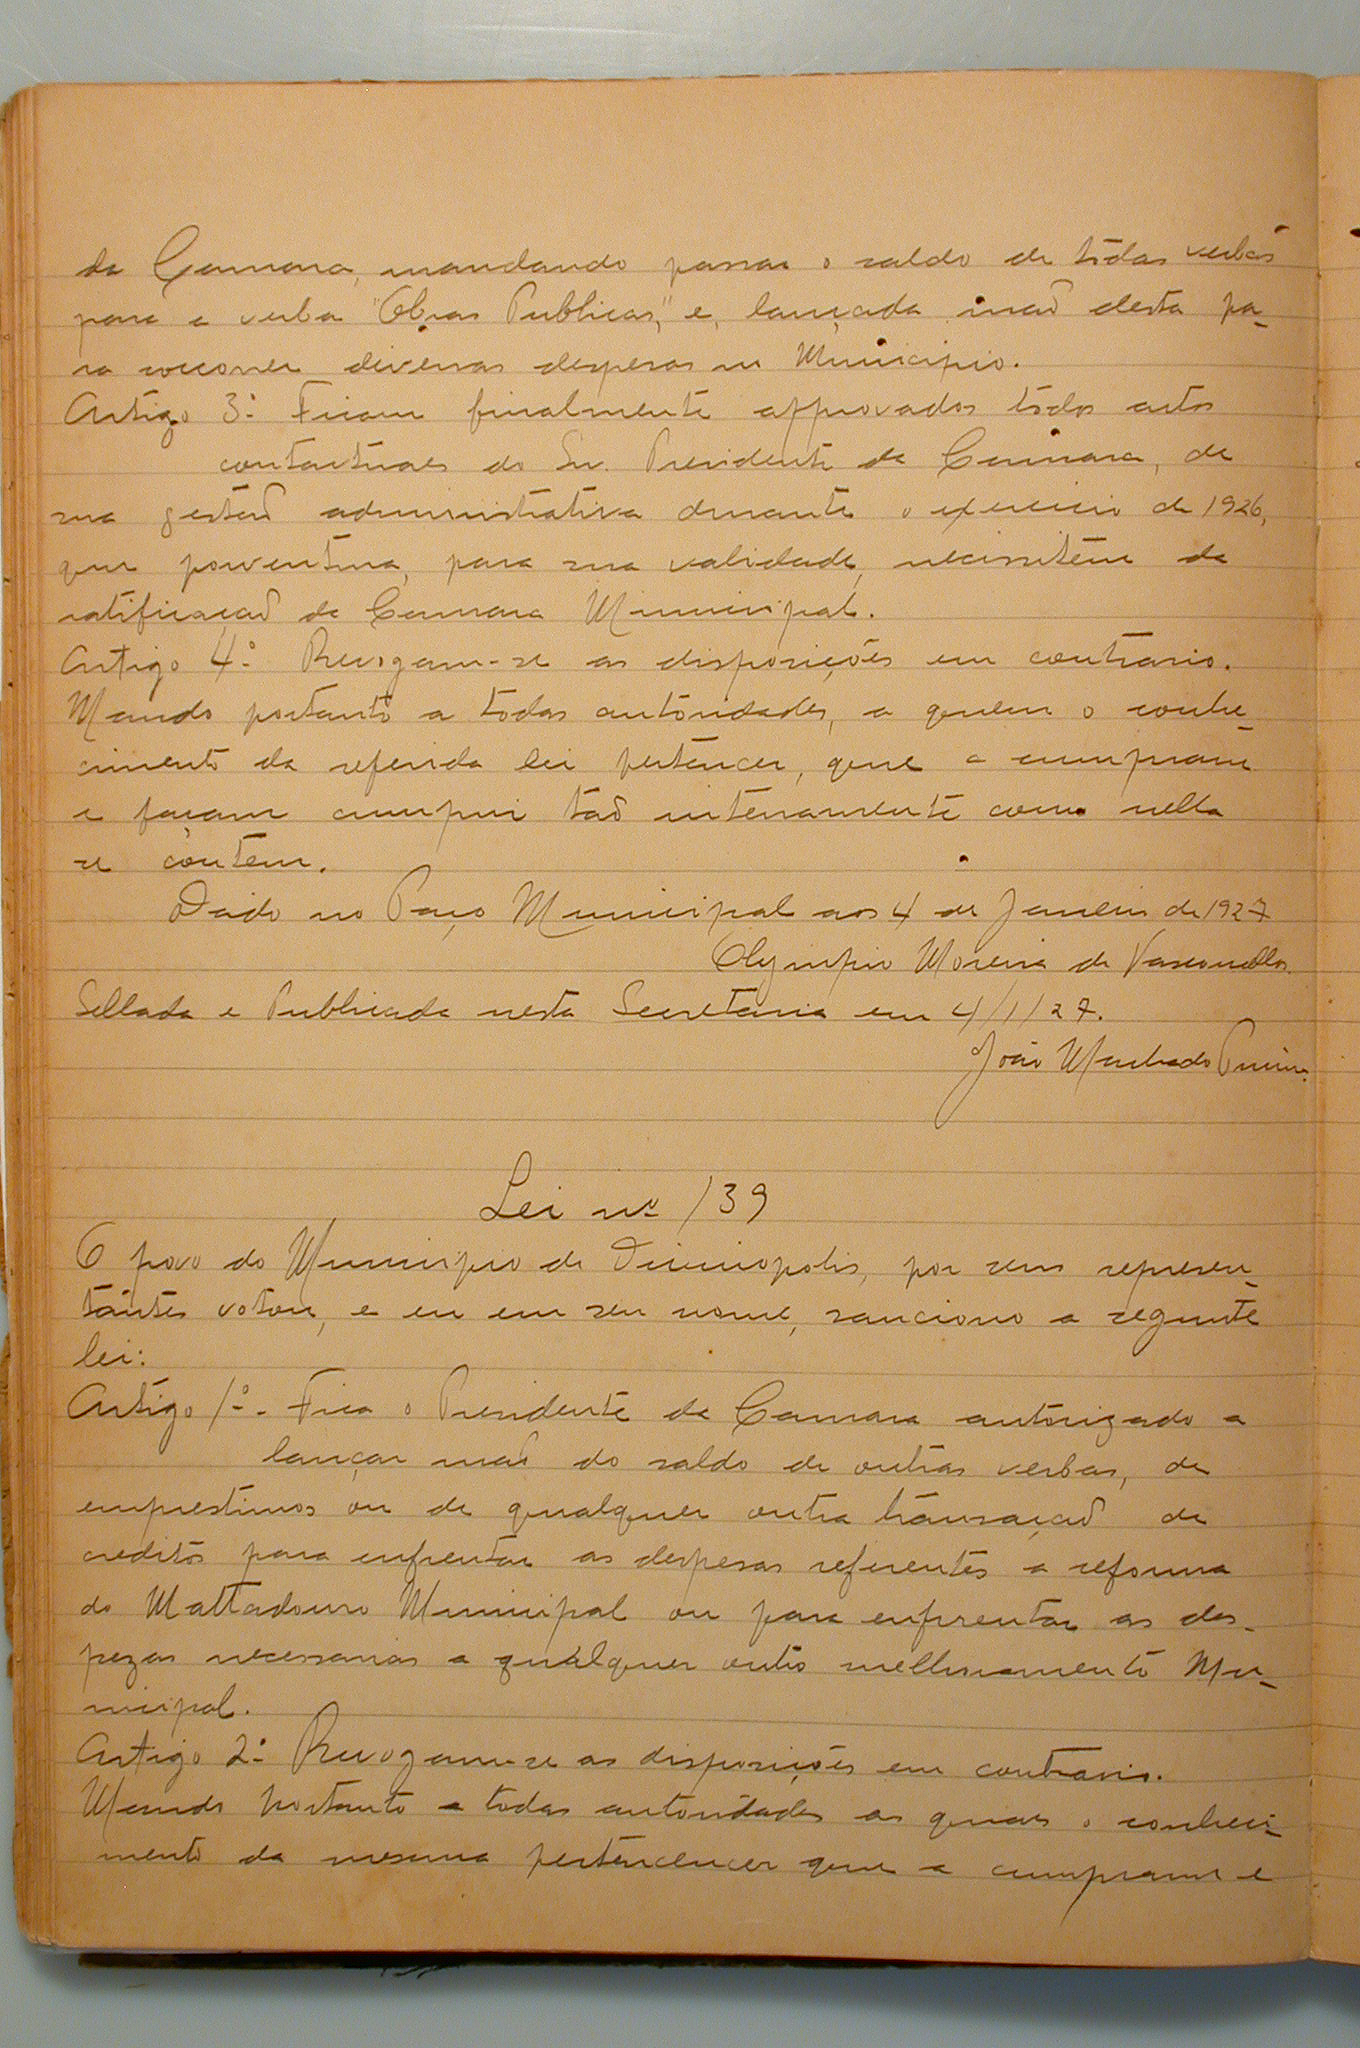 da Camara, mandando passar o saldo de todas verbas
para a verba "Obras Publicas," e, lançada maõ desta pa-
ra soccorrer diversas despesas no Municipio.
Artigo 3º Ficam finalmente approvados todos actos
contractuaes do Snr. Presidente da Camara, de
sua gestaõ administrativa durante o exercicio de 1926,
que porventura, para sua validade, necissitem da
ratificaçaõ da Camara Municipal.
Artigo 4º Revogam-se as disposições em contrario.
Mando portanto a todas autoridades, a quem o conhe-
cimento da referida lei pertencer, que a cumpram
e façam cumprir taõ inteiramente como nella
se contem.
Dado no Paço Municipal aos 4 de Janeiro de 1927
Olympio Moreira de Vasconcellos.
Sellada e Publicada nesta Secretaria em 4/1/27.
João Machado
Lei nº 139
O povo do Municipio de Divinopolis, por seus represen-
tantes votou, e eu em seu nome, sanciono a seguinte
lei:
Artigo 1º. Fica o Presidente da Camara autorizado a
lançar maõ do saldo de outras verbas, de
emprestimos ou de qualquer outra transaçaõ de
creditos para enfrentar as despesas referentes a reforma
do Mattadouro Municipal ou para enfrentar as des-
pezas necessarias a qualquer outro melhoramento Mu-
nicipal.
Artigo 2º Revogam-se as disposições em contrario.
Mando portanto a todas autoridades as quaes o conheci-
mento da mesma pertencencer que a cumpram e